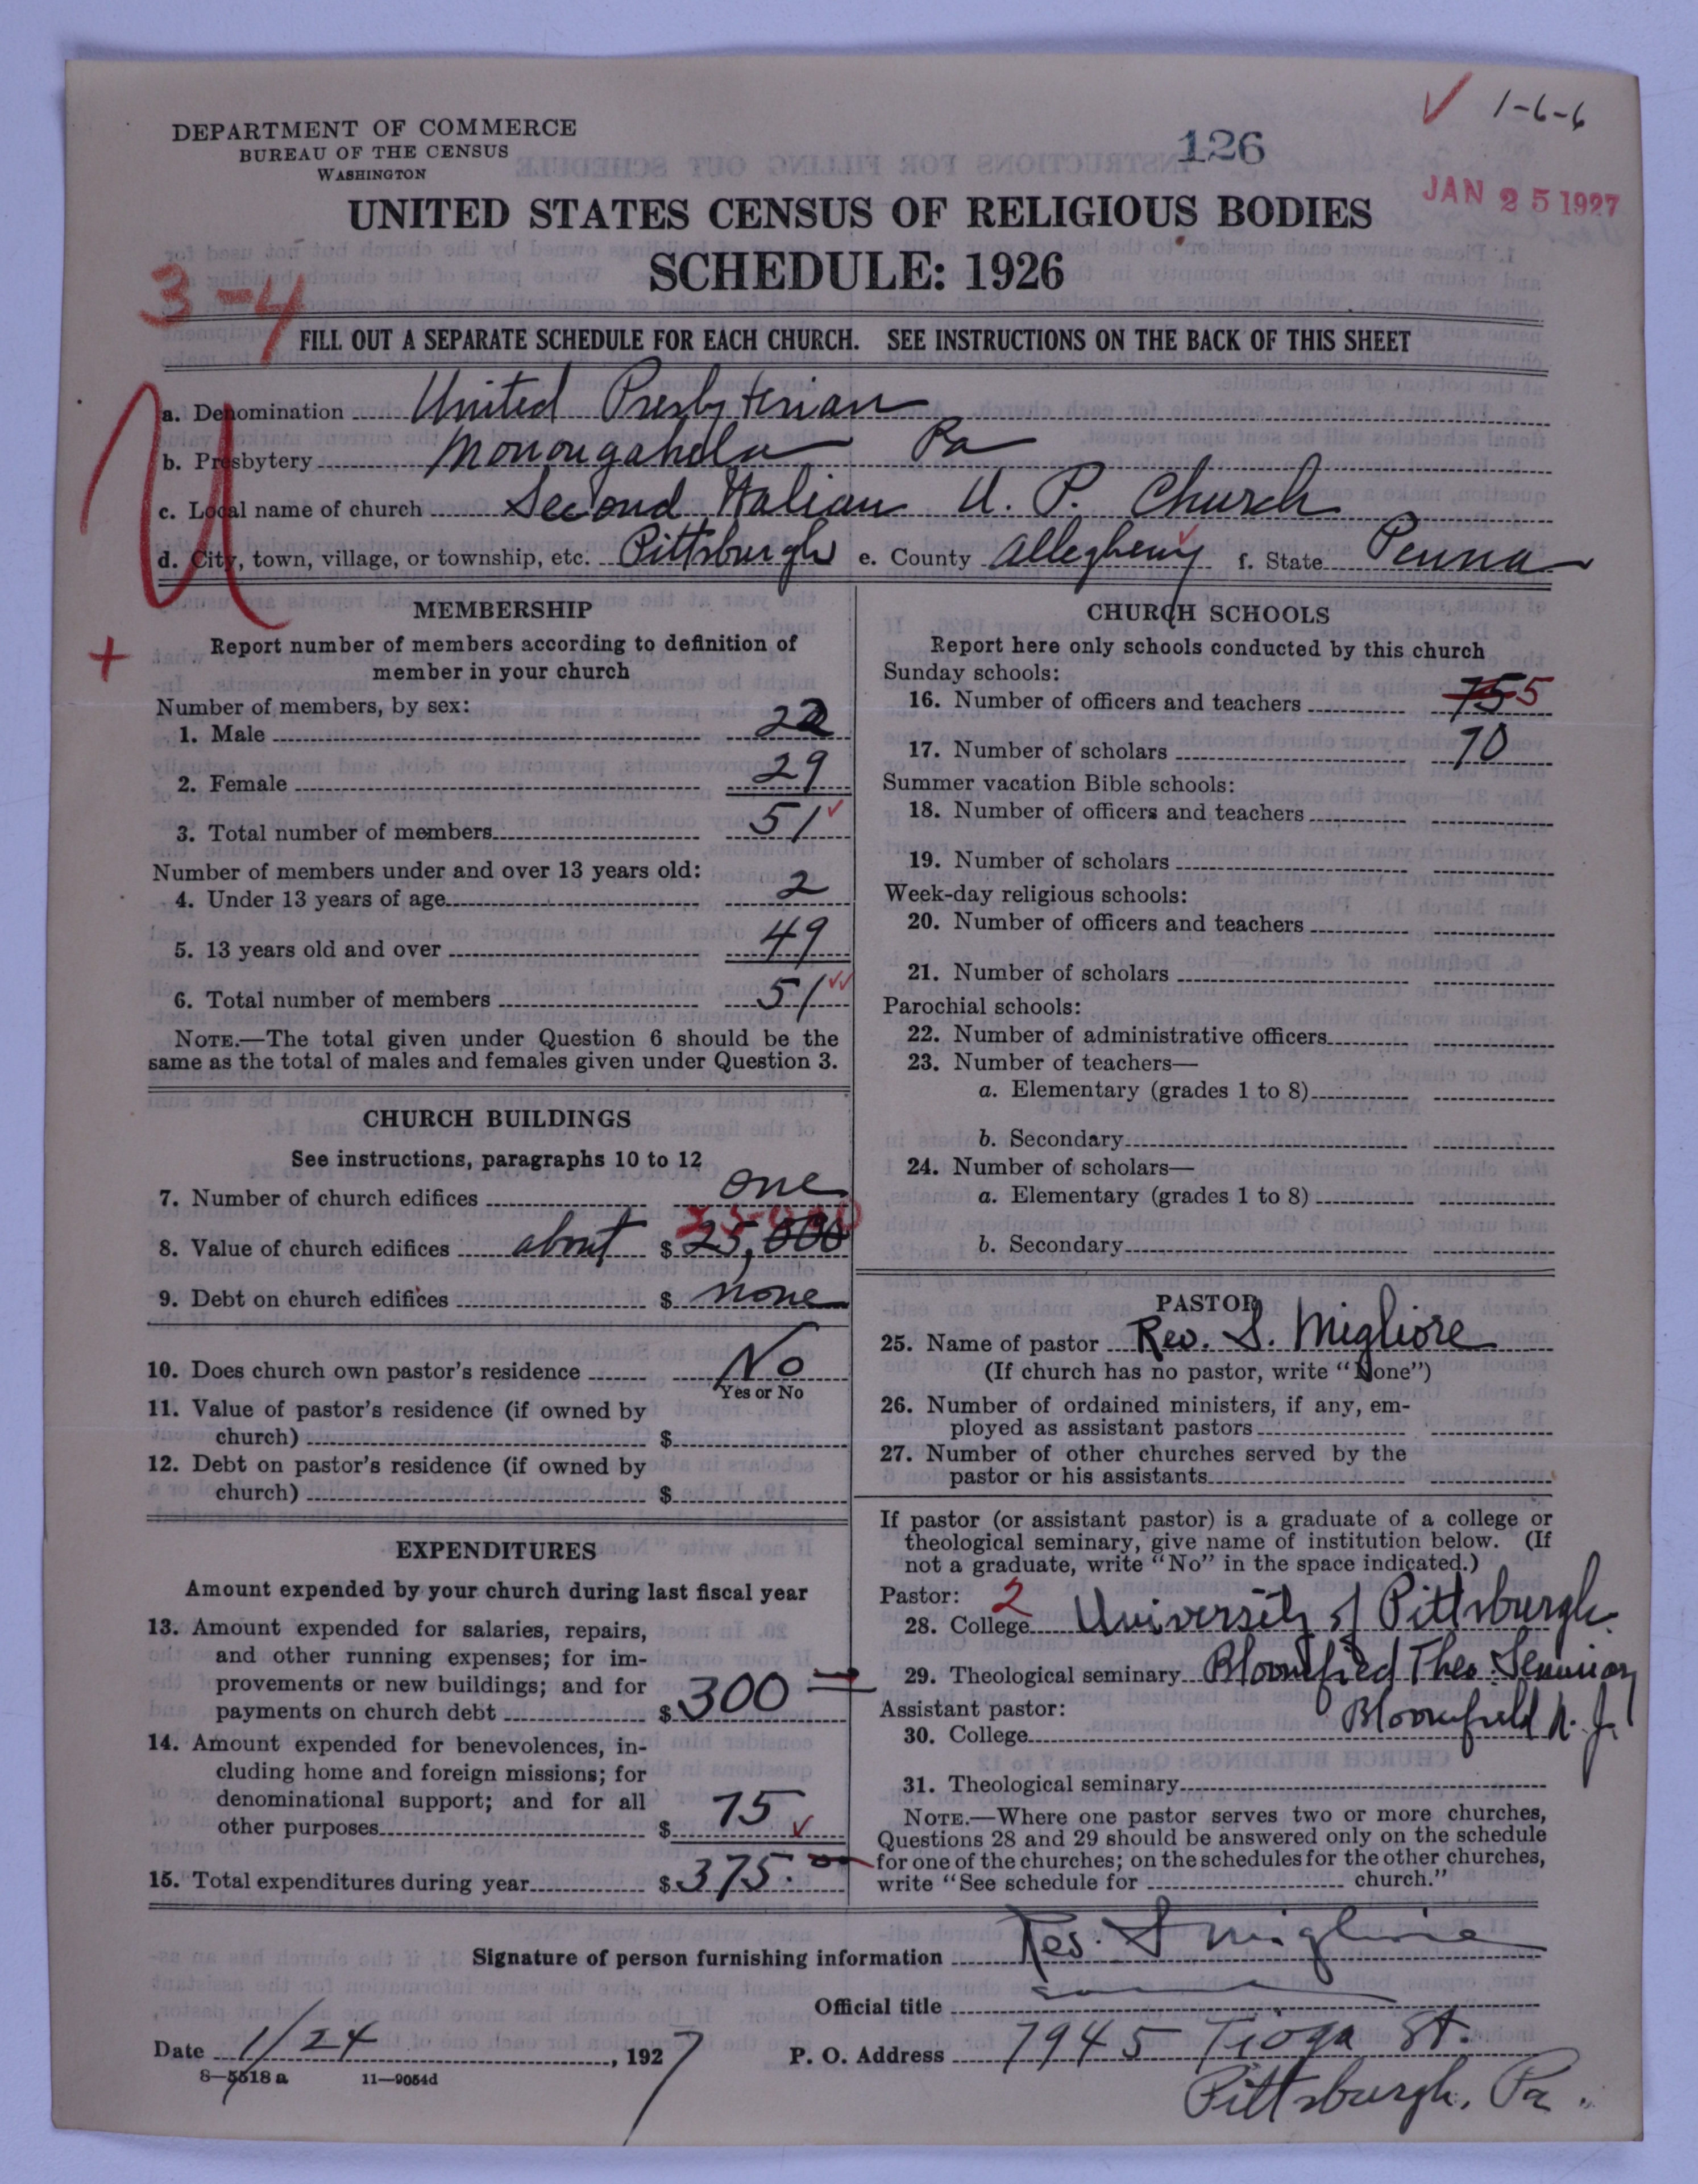 1-6-6
DEPARTMENT OF COMMERCE
BUREAU OF THE CENSUS
WASHINGTON
126
JAN 25 1927
UNITED STATES CENSUS OF RELIGIOUS BODIES
SCHEDULE: 1926
3-4
FILL OUT A SEPARATE SCHEDULE FOR EACH CHURCH. SEE INSTRUCTIONS ON THE BACK OF THIS SHEET
U
a. Denomination United Presbyterian
b. Presbytery Monongahela Pa
c. Local name of church Second Italian U. P. Church
d. City, town, village, or township, etc. Pittsburgh e. County Allegheny f. State Penna
MEMBERSHIP
Report number of members according to definition of
member in your church
Number of members, by sex:
1. Male 22
2. Female 29
3. Total number of members 51
Number of members under and over 13 years old:
4. Under 13 years of age 2
5. 13 years old and over 49
6. Total number of members 51
NOTE.—The total given under Question 6 should be the
same as the total of males and females given under Question 3.
CHURCH BUILDINGS
See instructions, paragraphs 10 to 12
7. Number of church edifices one
8. Value of church edifices about $ 25,000
9. Debt on church edifices $ none
10. Does church own pastor's residence No
Yes or No
11. Value of pastor's residence (if owned by
church) $
12. Debt on pastor's residence (if owned by
church) $
EXPENDITURES
Amount expended by your church during last fiscal year
13. Amount expended for salaries, repairs,
and other running expenses; for im-
provements or new buildings; and for
payments on church debt $ 300
14. Amount expended for benevolences, in-
cluding home and foreign missions; for
denominational support; and for all
other purposes $ 75
15. Total expenditures during year $ 375.
CHURCH SCHOOLS
Report here only schools conducted by this church
Sunday schools:
16. Number of officers and teachers 75 5
17. Number of scholars 70
Summer vacation Bible schools:
18. Number of officers and teachers
19. Number of scholars
Week-day religious schools:
20. Number of officers and teachers
21. Number of scholars
Parochial schools:
22. Number of administrative officers
23. Number of teachers—
a. Elementary (grades 1 to 8)
b. Secondary
24. Number of scholars—
a. Elementary (grades 1 to 8)
b. Secondary
PASTOR
25. Name of pastor Rev. S. Migliore
(If church has no pastor, write "None")
26. Number of ordained ministers, if any, em-
ployed as assistant pastors
27. Number of other churches served by the
pastor or his assistants
If pastor (or assistant pastor) is a graduate of a college or
theological seminary, give name of institution below. (If
not a graduate, write "No" in the space indicated.)
Pastor: 2
28. College University of Pittsburgh
29. Theological seminary Bloomfied Theo. Seminary
Assistant pastor: Bloomfield N. J.
30. College
31. Theological seminary
NOTE.—Where one pastor serves two or more churches,
Questions 28 and 29 should be answered only on the schedule
for one of the churches; on the schedules for the other churches,
write "See schedule for church."
Signature of person furnishing information Rev. S Migliore
Official title
Date 1/24, 1927 P. O. Address 7945 Tioga St.
8-5518a 11-9054d
Pittsburgh, Pa.